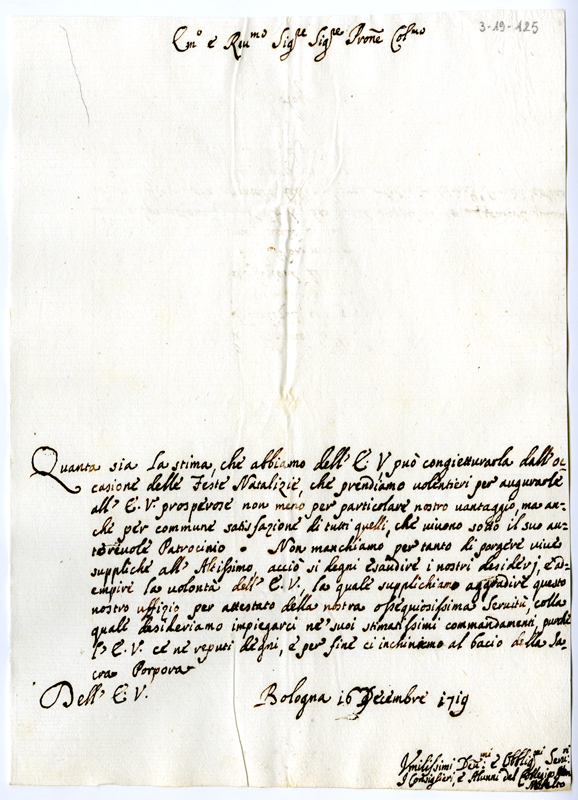 3-19-125
Em.o e Reu.mo Sig.re Sig.re Prone Col.mo
Quanta sia la stima, che abbiamo dell' E. V. può congietturarla dall' oc-
casione delle Feste Natalizie, che prendiamo volentieri per augurarle
all' E. V. prosperose non meno per particolare nostro vantaggio, ma an-
che per commune satisfazione di tutti quelli, che uiuono sotto il suo au-
tereuole Patrocinio. Non manchiamo per tanto di porgere viue
suppliche all' Altissimo, acciò si degni esaudire i nostri desiderj, e d'
empire la volontà dell' E. V., la quale supplichiamo aggradire questo
nostro uffizio per attestato della nostra ossequiosissima Seruitù, colla
quale desideriamo impiegarci ne' suoi stimatissimi commandamenti, purche
l' E. V. ce ne reputi degni, e per fine ci inchiniamo al bacio della Sa-
cra Porpora
Dell' E. V.
Bologna 16 Decembre 1719
Vmilissimi Deu.mi e Obblig.mi Seru.ri
I Consiglieri, e Alunni del Collegio